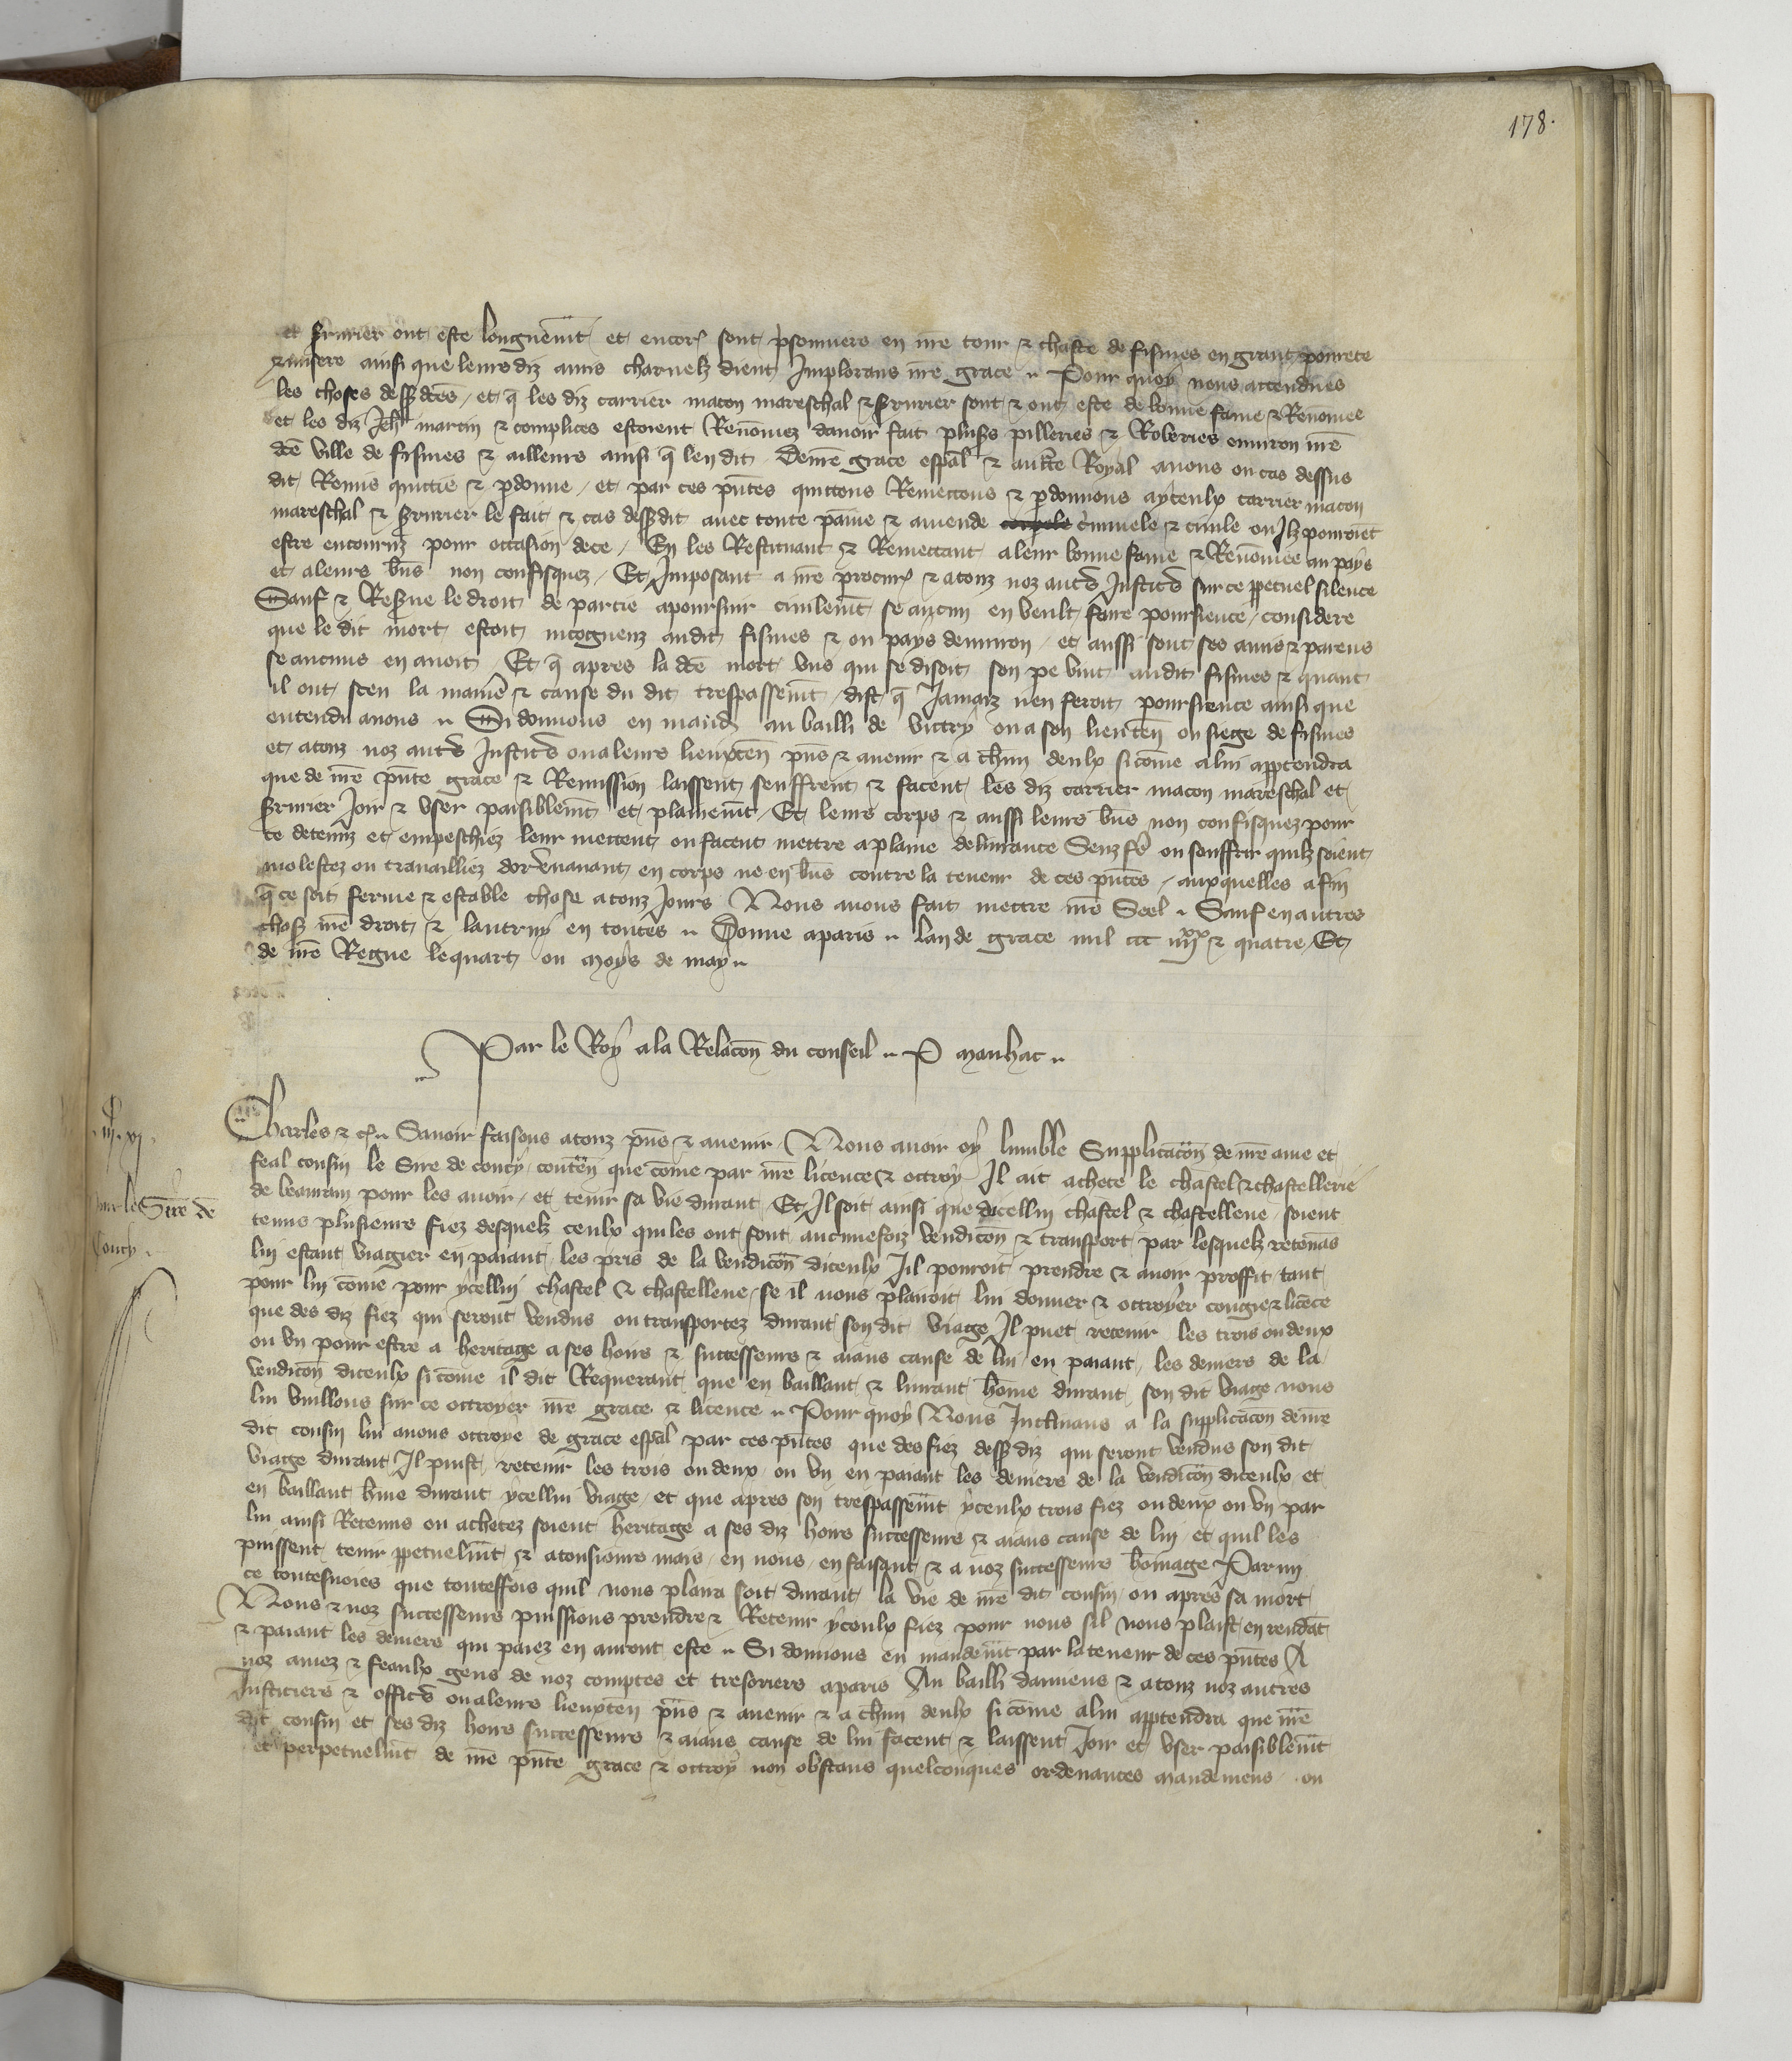 178.
et Serurier ont este longuemt et encor sont prisonniers en nre tour & chastel de fismes en grant pourete
& misere ainsi que leurs diz amis charnelz dient Implorans nre grace .. Pour quoy nous attendues
les choses dessus dcēs / et q̄ les diz carrier macon mareschal & Serurier sont & ont este de bonne fame & Renōmee
et les diz Jehan martin & complices estoient Renōmez dauoir fait pluss pilleries & Roberies enuiron nrē
dcē ville de fismes & ailleurs ainsi q̄ len dit Demē grace esp̄al & aucte Royal auons ou cas dessus
dit Remis quittie & p̄donne / et par ces p̄ntes quittons Remettons & p̄donnons aycculx carrier macon
mareschal & Serurier le fait & cas dess dit auec toute paine & amende c̄minele & ciuile ou Ilz pourroiēt
estre encouruz pour occasion dece / En les Restituant & Remettant a leur bonne fame & Renōmee au pays
et a leurs biēs non confisquez / Et Imposant a nrē procur & atouz noz autrs Justicrs sur ce ppetuel silence
Sauf & Reserue le droit de partie apoursuir ciuilemt se aucun en veult faire poursieute / considere
que le dit mort estoit incogneuz audit fismes & ou pays denuiron / et aussi sont ses amis & parens
se aucuns en auoit / Et q̄ apres la dcē mort vns qui se disoit son pe vint audit fismes & quant
il ont sceu la manie & cause du dit trespassemt / dist q̄ Jamaiz nen feroit poursieute ainsi que
entendu auons .. Si donnons en mand au bailli de victry ou a son lieuten ou siege de fismes
et atouz noz autrs Justicrs ou a leurs lieuxten pns & auenir & a chun deulx sicōme alui apptendra
que de nrē pnte grace & Remission laissent seuffrent & facent les diz carrier macon mareschal et
Serurier Joir & vser paisiblemt et plainemt Et leurs corps & aussi leurs biēs non confisquez pour
ce detenuz et empeschiez leur mettent ou facent mettre a plaine deliurance Senz fe ou souffrir quilz soient
molestez ou trauailliez dorenauant en corps ne en biēs contre la teneur de ces pntes / auxquelles afin
q̄ ce soit ferme & estable chose atouz Jours Nous auons fait mettre nrē Seel .. Sauf en autres
chos nrē droit & lautruy en toutes .. Donne aparis .. lan de grace mil ccc iiijxx & quatre Et
de nrē Regne lequart ou moys de may ..
Par le Roy a la Relacōn du conseil .. P manhac ..
iij. xj.
pour le Sire de
Coucy .
Charles & c̄ .. Sauoir faisons atouz pns & auenir / Nous auoir oy lumble Supplicacōn de nrē ame et
feal cousin le Sire de coucy / conten que cōme par nrē licence & octroy Il ait achete le chastel & chastellerie
de beaurain pour les auoir / et tenir sa vie durant Et Il soit ainsi que dicellui chastel & chastellerie soient
tenus plusieurs fiez desquelz ceulx qui les ont font aucunefoiz vendicōn & transport par lesquelz retenās
lui estant viagier en paiant les pris de la vendicōn diceulx Jil pourroit prendre & auoir proffit tant
pour lui cōme pour ycellui chastel & chastellerie / se il nous plaisoit lui donner & octroyer congie & licēce
que des diz fiez qui seront vendus ou transportez durant son dit viage Il puet retenir les trois ou deux
ou vn pour estre a heritage a ses hoirs & successeurs & aians cause de lui en paiant les deniers de la
vendicōn diceulx sicōme il dit Requerant que en baillant & liurant hōme durant son dit viage nous
lui vuillons sur ce octroyer nrē grace & licence .. Pour quoy Nous Inclinans a la supplicacōn denrē
dit cousin lui auons octroye de grace esp̄al par ces p̄ntes que des fiez dess diz qui seront vendus son dit
viage durant Il puist retenir les trois ou deux ou vn en paiant les deniers de la vendicōn diceulx et
en baillant hōme durant ycellui viage / et que apres son trespassemt yceulx trois fiez ou deux ou vn par
lui ainsi Retenus ou achetez soient heritage a ses diz hoirs successeurs & aians cause de lui / et quil les
puissent tenir ppetuelmt & atousiours mais / en nous / en faisant & a noz successeurs hōmage Parmi
ce toutesuoies que touteffois quil nous plaira soit durant la vie de nrē dit cousin ou apres sa mort
Nous & noz successeurs puissions prendre & Retenir yceulx fiez pour nous sil nous plaist en rendāt
& paiant les deniers qui paiez en auront este .. Si donnons en mandemt par la teneur de ces pntes A
noz amez & feaulx gens de noz comptes et tresoriers aparis Au bailli damiens & atouz noz autres
Justiciers & officrs ou a leurs lieuxten pns & auenir & a chun deulx sicōme alui apptendra que nrē
dit cousin et ses diz hoirs successeurs & aians cause de lui facent & laissent Joir et vser paisiblemt
et perpetuelmt de nrē pnte grace & octroy non obstans quelconques ordenances mandemens / ou